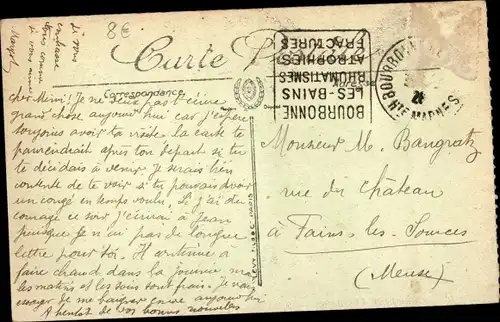 8€
Carte Postale
Correspondance
Si vous
Cher Mimi! Je ne veux pas t'écrire
grand chose aujourd'hui car j'espère
toujours avoir ta visite la carte te
parviendrait après ton départ si tu
te décidais à venir Je serais bien
contente de te voir si tu pouvais avoir
un congé en temps voulu. Si j'ai du
courage ce soir j'écrirai à Jean
puisque je n'ai pas de longue
lettre pour toi. Il continue à
faire chaud dans la journée mais
les matins et les soirs sont frais. Je vais
me baigner encore aujourd'hui
A bientôt de vos bonnes nouvelles
BOURBONNE
LES-BAINS
RHUMATISMES
ATROPHIES
FRACTURES
BOURBONNE
Hte MARNE
Monsieur M. Bangratz
rue du Château
à Fains-les-Sources
(Meuse)